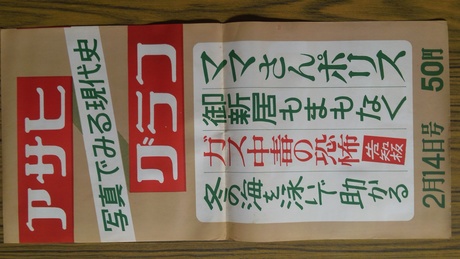 アサヒ
写真でみる現代史
グラフ
ママさんポリス
御新居もまもなく
ガス中毒の恐怖
冬の海を泳いで助かる
2月14日号 50円